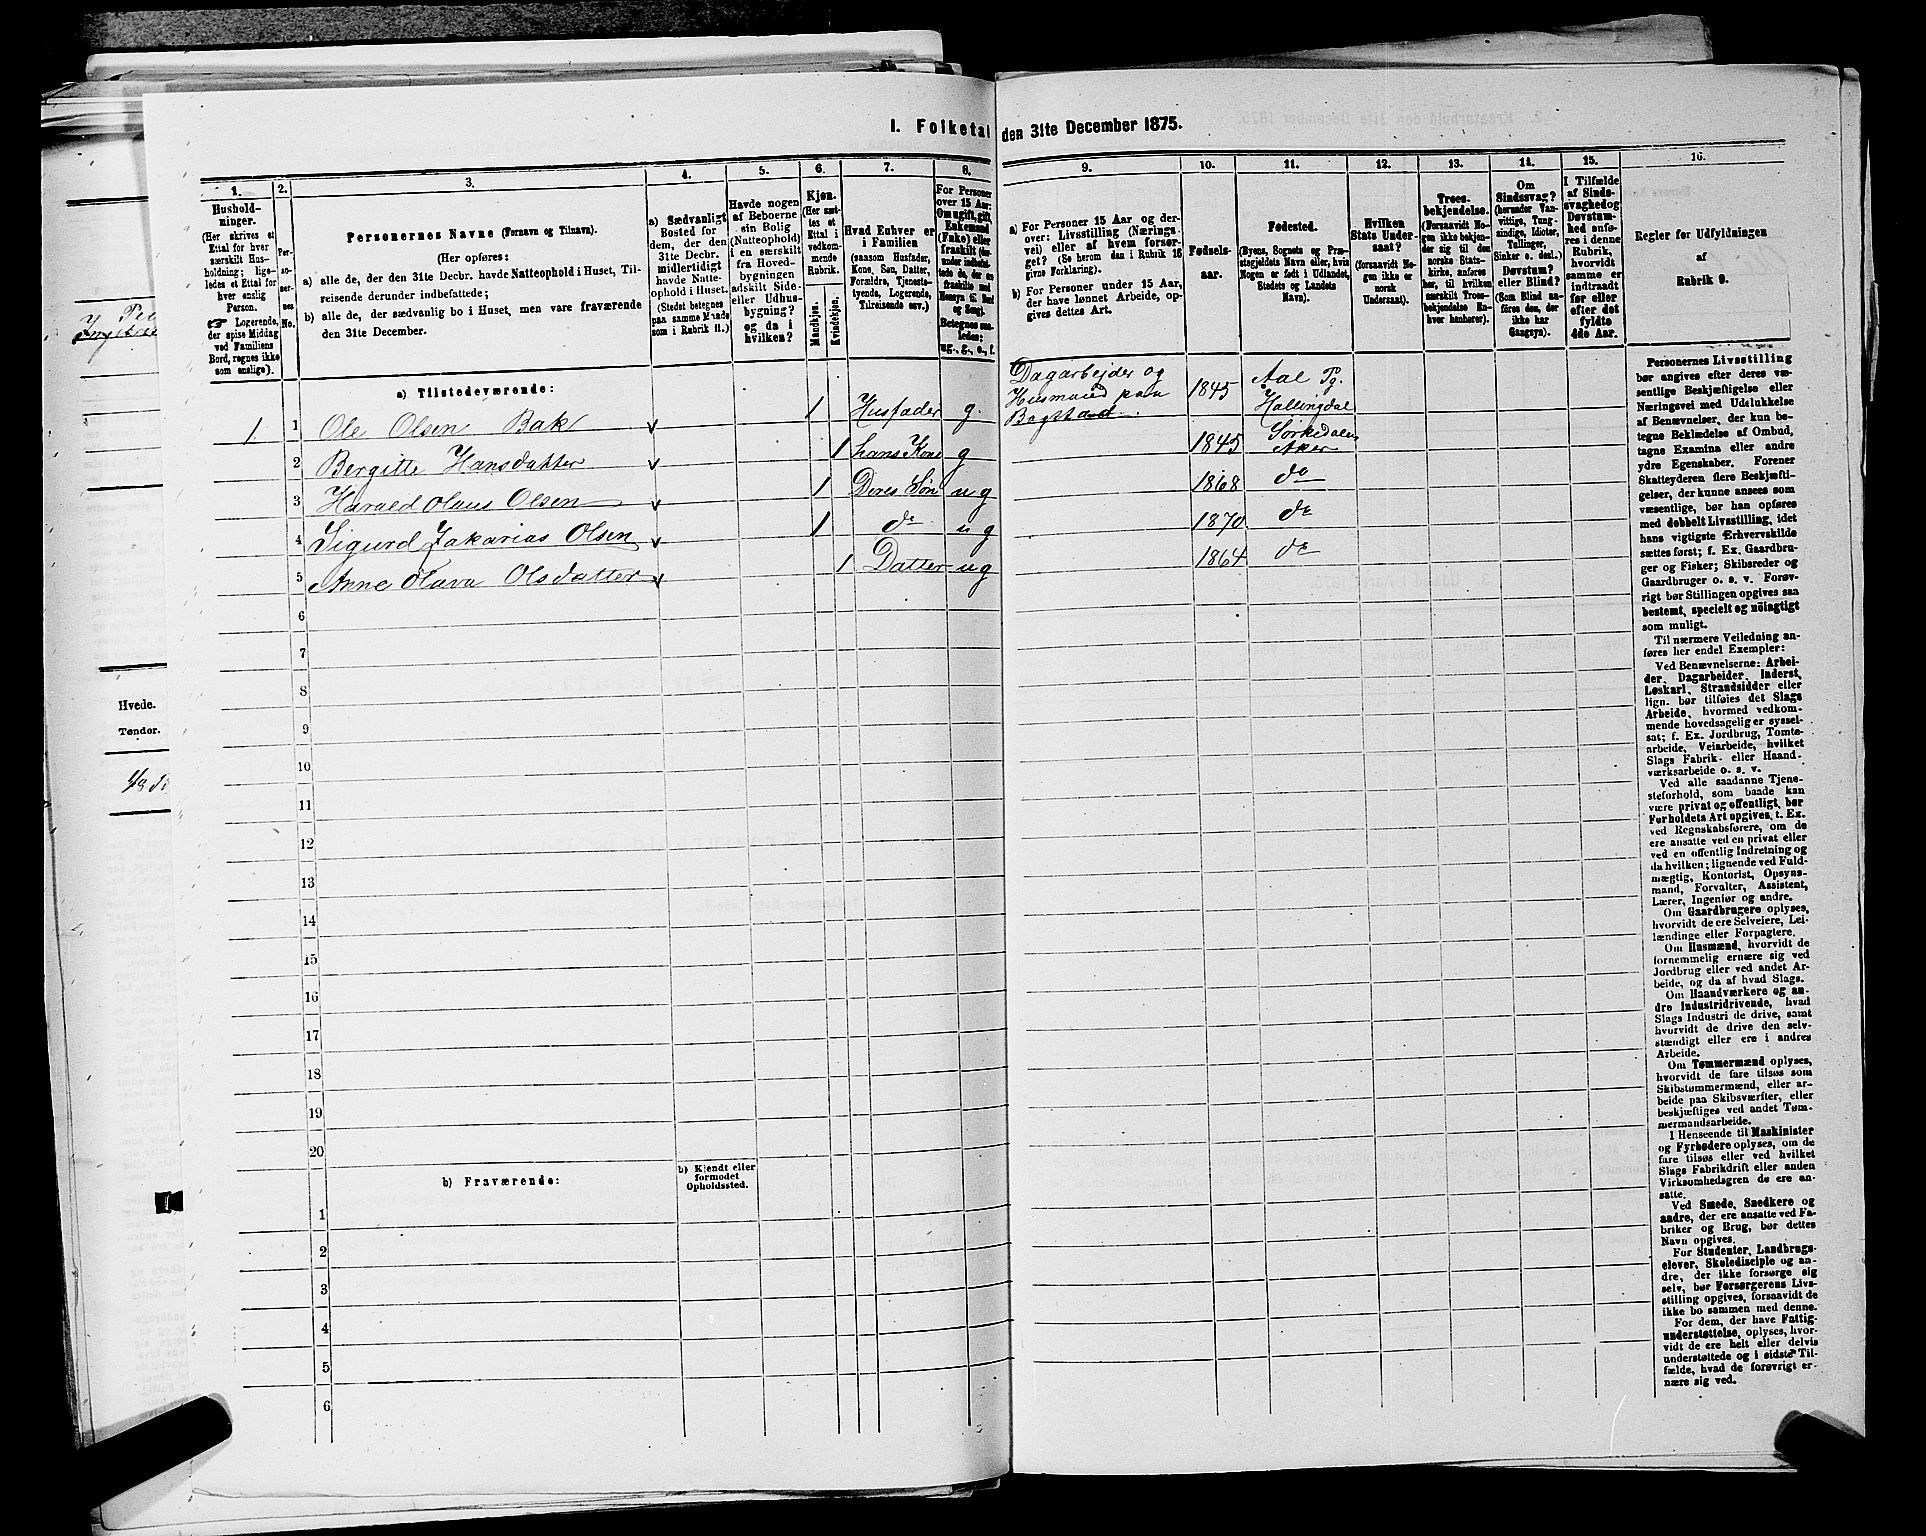 I. Folketal den 31te December 1875.
1. 2. 3. 4. 5. 6. 7. 8. 9. 10. 11. 12. 13. 14. 15. 16.
Hushold-
ninger.
(Her skrives et
Ettal for hver
særskilt Hus-
holdning; lige-
ledes et Ettal for
hver enslig
Person.
Logerende,
der spise Middag
ved Familiens
Bord, regnes ikke
som enslige).
Per-
so-
ner-
nes
No.
Personernes Navne (Fornavn og Tilnavn).
(Her opføres:
a) alle de, der den 31te Decbr. havde Natteophold i Huset, Til-
reisende derunder indbefattede;
b) alle de, der sædvanlig bo i Huset, men vare fraværende
den 31te December.
a) Sædvanligt
Bosted for
dem, der den
31te Decbr.
midlertidigt
havde Natte-
ophold i Huset.
(Stedet betegnes
paa samme Maade
som i Rubrik 11.)
Havde nogen
af Beboerne
sin Bolig
(Natteophold)
i en særskilt
fra Hoved-
bygningen
adskilt Side-
eller Udhus-
bygning?
og da i
hvilken?
Kjøn.
(Her sæt-
tes et
Ettal i
vedkom-
mende
Rubrik.
Mandkjøn.
Kvindekjøn.
Hvad Enhver er
i Familien
(saasom Husfader,
Kone, Søn, Datter,
Forældre, Tjeneste-
tyende, Logerende,
Tilreisende osv.)
For Personer
over 15 Aar:
Om ugift, gift,
Enkemand
(Enke) eller
fraskilt
Betegnes saa-
ledes:
ug., g., e., f.
a) For Personer 15 Aar og der-
over: Livsstilling (Nærings-
vei) eller af hvem forsør-
get? (Se herom den i Rubrik 16
givne Forklaring).
b) For Personer under 15 Aar,
der have lønnet Arbeide, op-
gives dettes Art.
Fødsels-
aar.
Fødested.
(Byens, Sognets og Præ-
stegjeldets Navn eller, hvis
Nogen er født i Udlandet,
Stedets og Landets
Navn).
Hvilken
Stats Under-
saat?
(forsaavidt No-
gen ikke er
norsk
Undersaat).
Troes-
bekjendelse.
(Forsaavidt No-
gen ikke bekjen-
der sig til den
norske Stats-
kirke, anføres
her, til hvilken
særskilt Troes-
bekjendelse En-
hver henhører).
Om
Sindssvag?
(herunder Van-
vittige, Tung-
sindige, Idioter,
Tullinger,
Sinker o. desl.)
Døvstum?
eller Blind?
(Som Blind an-
føres den, der
ikke har
Gangsyn).
I Tilfælde
af Sinds-
svaghed og
Døvstum-
hed anfø-
res i denne
Rubrik,
hvorvidt
samme er
indtraadt
før eller
efter det
fyldte
4de Aar.
Regler for Udfyldningen
af
Rubrik 9.
a) Tilstedeværende:
1 1 Ole Olsen Bak v 1 Husfader g. Dagarbejder og Husmand paa Bogstad 1845 Aal Pg. Hallingdal
2 Bergitte Hansdatter v 1 hans Kone g 1845 Sørkedalen Aker
3 Harald Olaus Olsen v 1 Deres Søn ug 1868 do
4 Sigurd Zakarias Olsen v 1 do ug 1870 do
5 Anne Olava Olsdatter v 1 Datter ug 1864 do
6
7
8
9
10
11
12
13
14
15
16
17
18
19
20
b) Fraværende:
b) Kjendt eller
formodet
Opholdssted.
1
2
3
4
5
6
Personernes Livsstilling
bør angives efter deres væ-
sentlige Beskjæftigelse eller
Næringsvei med Udelukkelse
af Benævnelser, der kun be-
tegne Beklædelse af Ombud,
tagne Examina eller andre
ydre Egenskaber. Forener
Skatteyderen flere Beskjæfti-
gelser, der kunne ansees som
væsentlige, bør han opføres
med dobbelt Livsstilling, idet
hans vigtigste Erhvervskilde
sættes først; f. Ex. Gaardbru-
ger og Fisker; Skibsreder og
Gaardbruger o. s. v. Forøv-
rigt bør Stillingen opgives saa
bestemt, specielt og nöiagtigt
som muligt.
Til nærmere Veiledning an-
føres her endel Exempler:
Ved Benævnelserne: Arbei-
der, Dagarbeider, Inderst,
Løskarl, Strandsidder eller
lign. bør tilføies det Slags
Arbeide, hvormed vedkom-
mende hovedsagelig er syssel-
sat; f. Ex. Jordbrug, Tomte-
arbeide, Veiarbeide, hvilket
Slags Fabrik- eller Haand-
værksarbeide o. s. v.
Ved alle saadanne Tjene-
steforhold, som baade kan
være privat og offentligt, bør
Forholdets Art opgives, t. Ex.
ved Regnskabsførere, om de
ere ansatte ved en privat eller
ved en offentlig Indretning og
da hvilken; lignende ved Fuld-
mægtig, Kontorist, Opsyns-
mand, Forvalter, Assistent,
Lærer, Ingeniør og andre.
Om Gaardbrugere oplyses,
hvorvidt de ere Selveiere, Lei-
lændinge eller Forpagtere.
Om Husmænd, hvorvidt de
fornemmelig ernære sig ved
Jordbrug eller ved andet Ar-
beide, og da af hvad Slags.
Om Haandværkere og an-
dre Industridrivende, hvad
Slags Industri de drive, samt
hvorvidt de drive den selv-
stændigt eller ere i andres
Arbeide.
Om Tømmermænd oplyses,
hvorvidt de fare tilsøs som
Skibstømmermænd, eller ar-
beide paa Skibsværfter, eller
beskjæftiges ved andet Tøm-
mermandsarbeide.
I Henseende til Maskinister
og Fyrbødere oplyses, om de
fare tilsøs eller ved hvilket
Slags Fabrikdrift eller anden
Virksomhedsgren de ere an-
satte.
Ved Smede, Snedkere og
andre, der ere ansatte ved Fa-
briker og Brug, bør dettes
Navn opgives.
For Studenter, Landbrugs-
elever, Skoledisciple og an-
dre, der ikke forsørge sig
selv, bør Forsørgerens Livs-
stilling opgives, forsaavidt de
ikke bo sammen med denne.
For dem, der have Fattig-
understøttelse, oplyses, hvor-
vidt de ere helt eller delvis
understøttede og i sidste Til-
fælde, hvad de forøvrigt er-
nære sig ved.
Hvede.
Tønder.